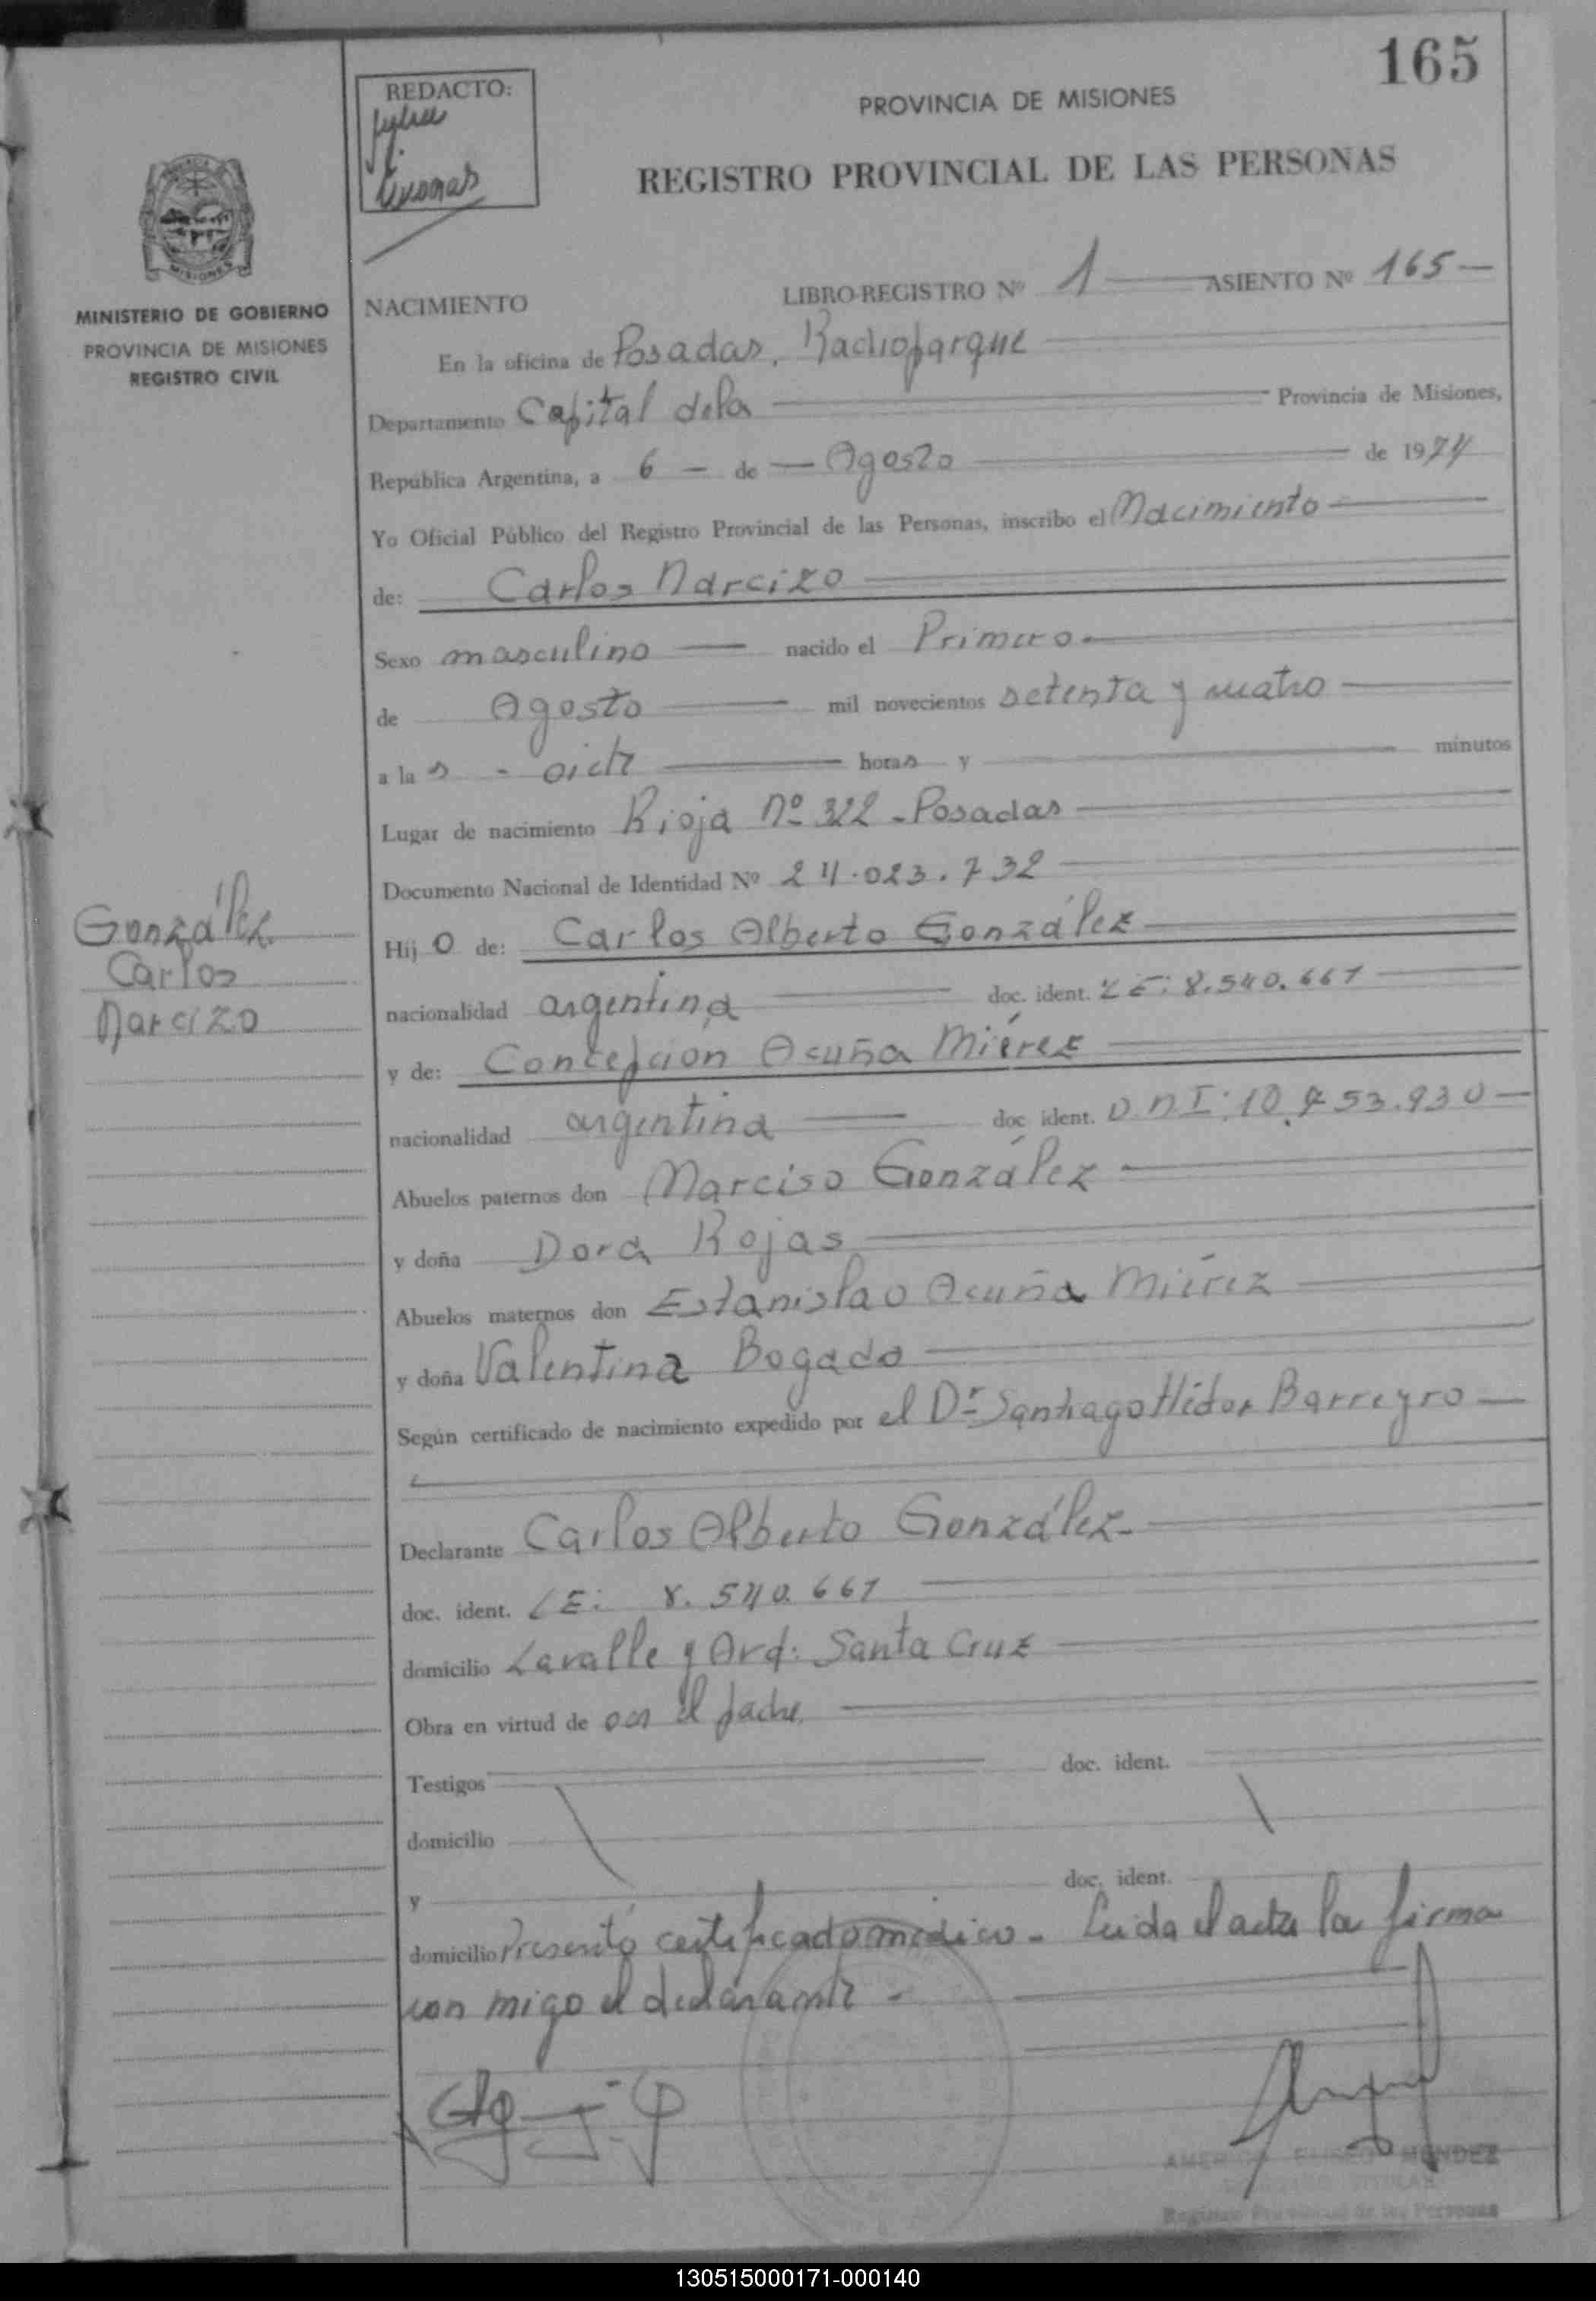 165
REDACTO:
PROVINCIA DE MISIONES
REGISTRO PROVINCIAL DE LAS PERSONAS
MINISTERIO DE GOBIERNO
PROVINCIA DE MISIONES
REGISTRO CIVIL
NACIMIENTO LIBRO-REGISTRO Nº 1 ASIENTO Nº 165
En la oficina de Posadas, Radioparque
Departamento Capital de la Provincia de Misiones,
República Argentina, a 6 de Agosto de 1974
Yo Oficial Público del Registro Provincial de las Personas, inscribo el Nacimiento
de: Carlos Narcizo
Sexo masculino nacido el Primero
de Agosto mil novecientos setenta y cuatro
a las ocho horas y minutos
Lugar de nacimiento Rioja Nº 322 - Posadas
Documento Nacional de Identidad Nº 24.023.732
González
Carlos
Narcizo
Hij o de: Carlos Alberto González
nacionalidad argentina doc. ident. LE: 8.540.661
y de: Concepción Acuña Miérez
nacionalidad argentina doc. ident. D.N.I:
Abuelos paternos don Narciso González
y doña Dora Rojas
Abuelos maternos don Estanislao Acuña Miérez
y doña Valentina Bogado
Según certificado de nacimiento expedido por el Dr Santiago Héctor Barreyro
Declarante Carlos Alberto González
doc. ident. LE: 8.540.661
domicilio Lavalle y Ard: Santa Cruz
Obra en virtud de ser el padre
Testigos doc. ident.
domicilio
y doc. ident.
domicilio Presentó certificado médico - Leida el acta la firma
con migo el declarante -
MENDEZ
Registro Provincial de las Personas
130515000171-000140